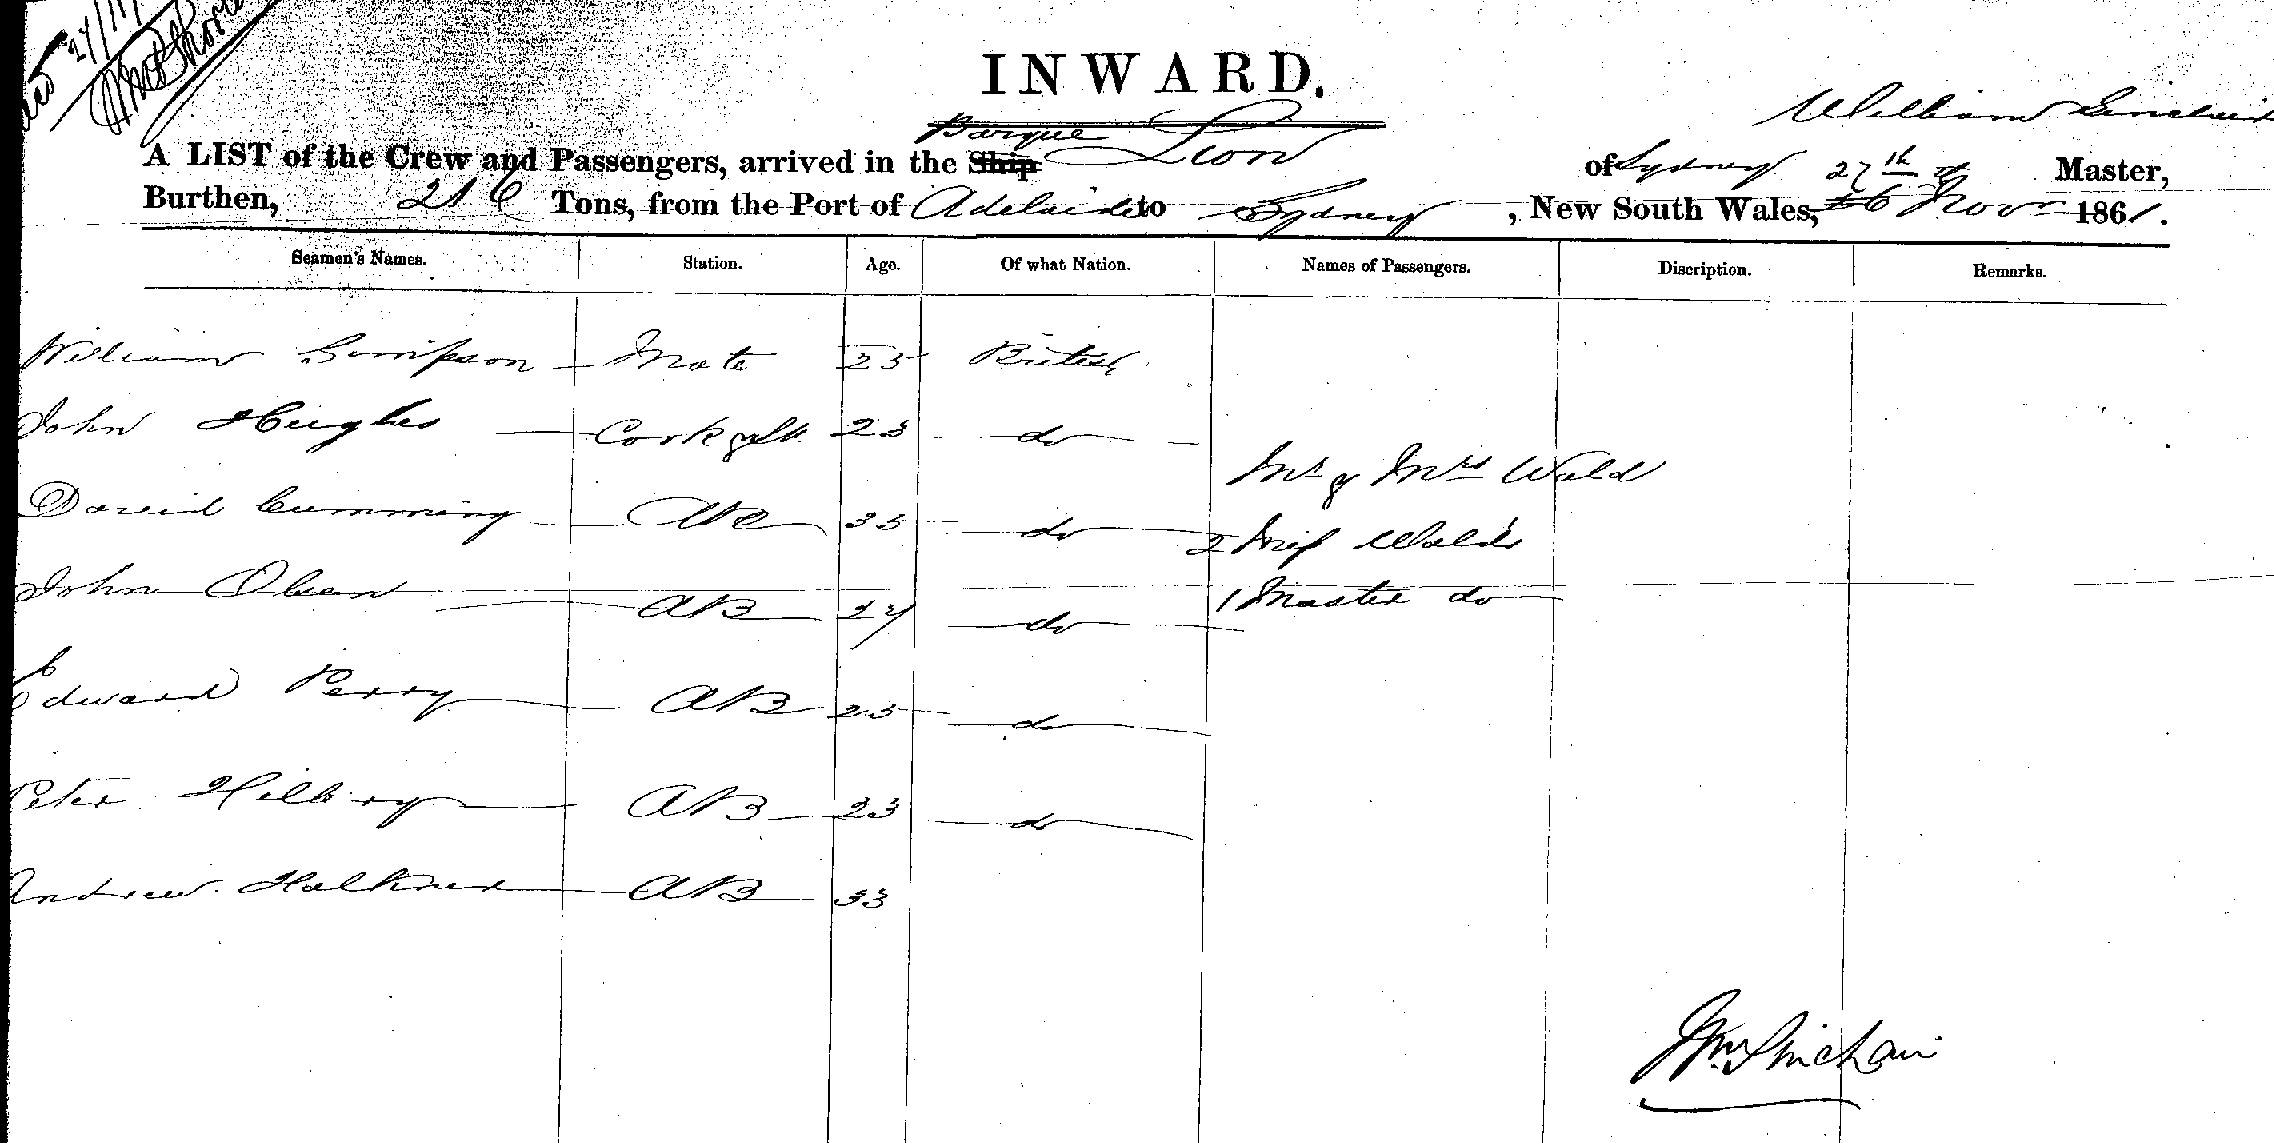 27/11/
INWARD.
William Sinclair
A LIST of the Crew and Passengers, arrived in the Ship Barque Lion of Sydney 27th Master,
Burthen, 216 Tons, from the Port of Adelaide to Sydney, New South Wales, 26 Novr 1861.
Seamen's Names. Station. Age. Of what Nation. Names of Passengers. Discription. Remarks.
William Simpson Mate 25 British
John Hughes Cook & St. 23 do
Mr & Mrs Wald
David Cumming AB 35 do
2 Miss Walds
John Olsen AB 27 do
1 Master do
Edward Perry AB 23 do
Peter AB 23 do
Andrew AB 33
Wm Sinclair